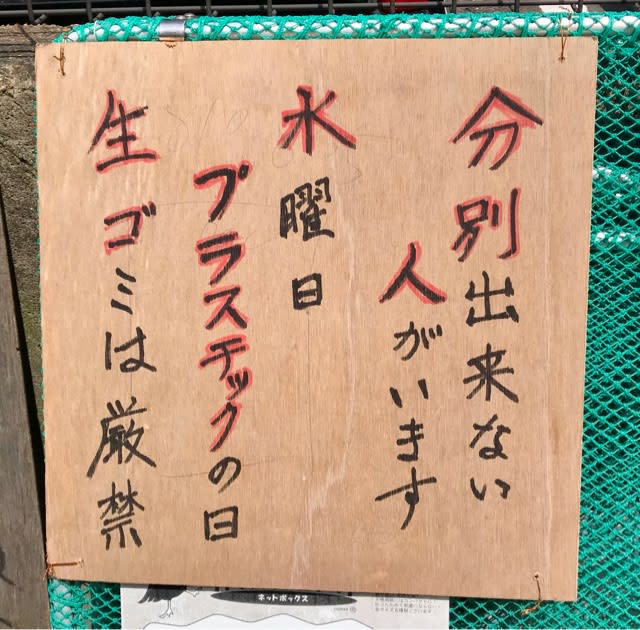 分別出来ない
人がいます
水曜日
プラスチックの日
生ゴミは厳禁
ネットボックス